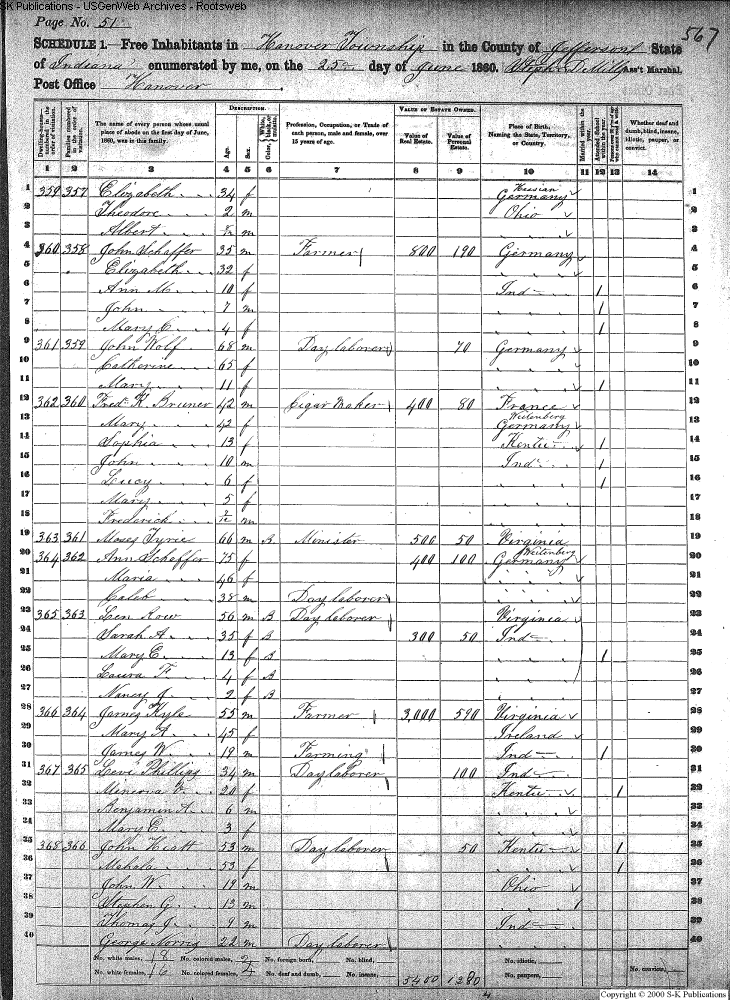 SK Publications - USGenWeb Archives - Rootsweb
Page No. 51
567
SCHEDULE 1.—Free Inhabitants in Hanover Township in the County of Jefferson State
of Indiana enumerated by me, on the 25 day of June 1860. Ass't Marshal.
Post Office Hanover
Dwelling-houses—numbered in the order of visitation.
Families numbered in the order of visitation.
The name of every person whose usual place of abode on the first day of June, 1860, was in this family.
DESCRIPTION.
Age.
Sex.
Color, White, black, or mulatto.
Profession, Occupation, or Trade of each person, male and female, over 15 years of age.
VALUE OF ESTATE OWNED.
Value of Real Estate.
Value of Personal Estate.
Place of Birth, Naming the State, Territory, or Country.
Married within the year.
Attended School within the year.
Whether deaf and dumb, blind, insane, idiotic, pauper, or convict.
1 2 3 4 5 6 7 8 9 10 11 12 13 14
1 359 357 Elizabeth 34 f Germany 1
2 Theodore 2 m Ohio 2
3 Albert m " 3
4 360 358 John Schaffer 35 m Farmer 800 190 Germany 4
5 Elizabeth 32 f " 5
6 Ann M. 10 f Ind 1 6
7 John 7 m " 1 7
8 Mary C. 4 f " 1 8
9 361 359 John Wolf 68 m Day laborer 70 Germany 9
10 Catherine 65 f " 10
11 Mary 11 f " 1 11
12 362 360 Fred. K. Bruner 42 m Cigar Maker 400 80 France 12
13 Mary 42 f Weitenberg Germany 13
14 Sophia 13 f Kentu 1 14
15 John 10 m Ind 1 15
16 Lucy 6 f " 1 16
17 Mary 5 f " 17
18 Frederick m " 18
19 363 361 Moses Tyrie 66 m B Minister 500 50 Virginia 19
20 364 362 Ann Scheffer 75 f 400 100 Weitenberg Germany 20
21 Maria 46 f " 21
22 Caleb 38 m Day laborer " 22
23 365 363 Len Row 56 m B Day laborer Virginia 23
24 Sarah A. 35 f B 300 50 Ind 24
25 Mary E. 13 f B " 1 25
26 Laura F. 4 f B " 26
27 Nancy J. 2 f B " 27
28 366 364 James Kyle 55 m Farmer 3,000 590 Virginia 28
29 Mary A. 45 f Ireland 29
30 James W. 19 m Farming Ind 1 30
31 367 365 Levi Phillips 34 m Day laborer 100 Ind 31
32 Minerva 20 f Kentu 1 32
33 Benjamin A. 6 m " 33
34 Mary E. 3 f " 34
35 368 366 John Hiatt 53 m Day laborer 50 Kentu 1 35
36 Mahala 53 f " 1 36
37 John W. 19 m Ohio 37
38 Stephen G. 13 m " 38
39 Thomas J. 9 m Ind 39
40 George Norris 22 m Day laborer " 40
No. white males, 18 No. colored males, 2 No. foreign born, No. blind,
No. white females, 16 No. colored females, 4 No. deaf and dumb, No. insane, 5400 1280
No. idiotic,
No. paupers,
No. convicts,
Copyright © 2000 S-K Publications